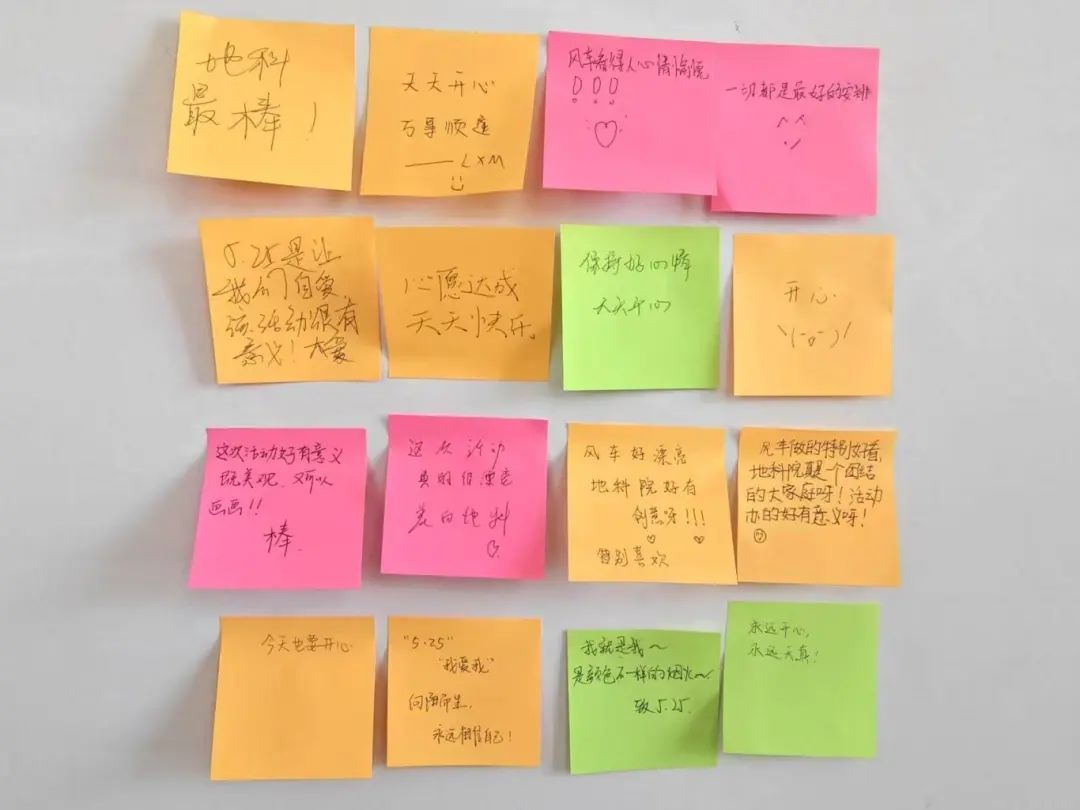 地科
最棒！
天天开心
万事顺遂
——LXM
风车看得人心情愉悦
！！！
一切都是最好的安排
5.25是让
我们自爱
该活动很有
意义！大爱
心愿达成
天天快乐
保持好心情
天天开心
开心
这次活动好有意义
既美观、又可以
画画！！
棒
这次活动
真的很漂亮
表白地科
风车好漂亮
地科院好有
创意呀！！！
特别喜欢
风车做的特别好看,
地科院真是一个团结
的大家庭呀！活动
办的好有意义呀！
今天也要开心
"5·25"
"我爱我"
向阳而生,
永远相信自己！
我就是我~
是颜色不一样的烟火~
致5.25.
永远开心,
永远天真！